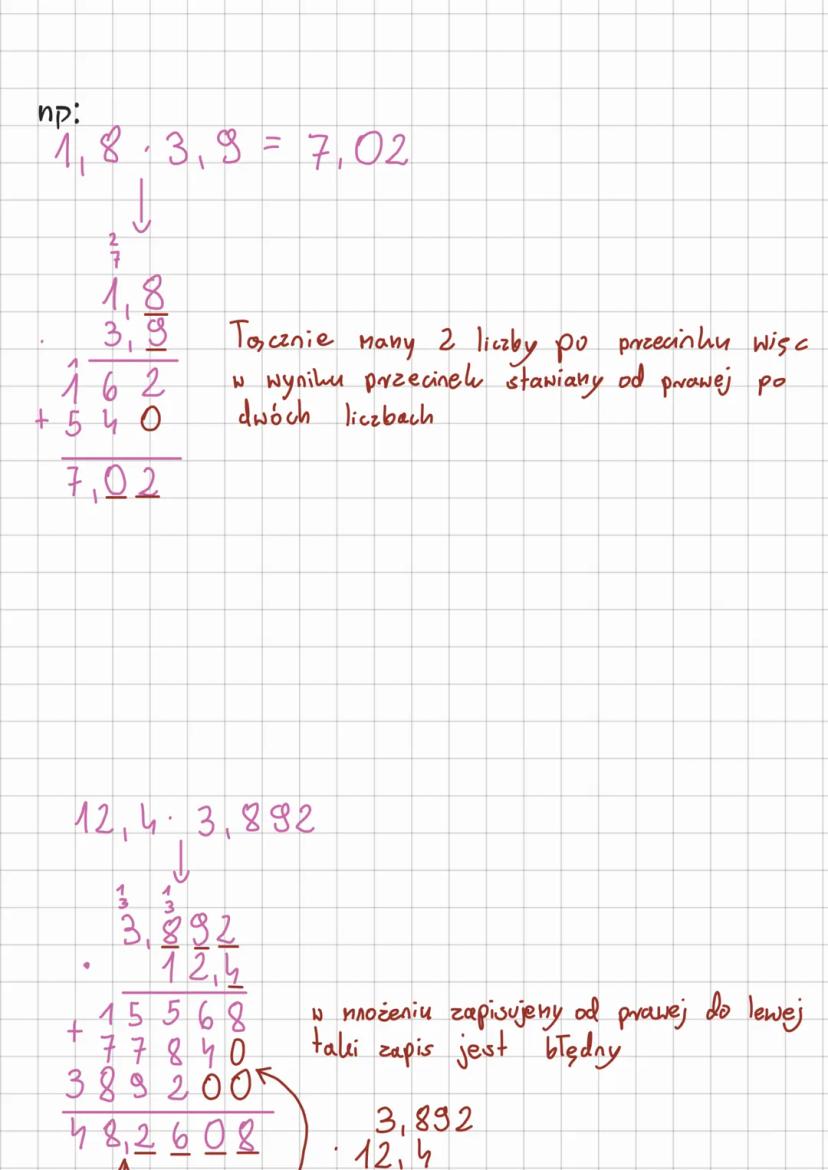 np:
1,8 · 3,9 = 7,02
2
7
1,8
· 3,9
1
162
+ 540
7,02
Łącznie mamy 2 liczby po przecinku więc
w wyniku przecinek stawiamy od prawej po
dwóch liczbach
12,4 · 3,892
1 1
3 3
3,892
· 12,4
+ 15568
77840
389200
48,2608
w mnożeniu zapisujemy od prawej do lewej
taki zapis jest błędny
3,892
· 12,4